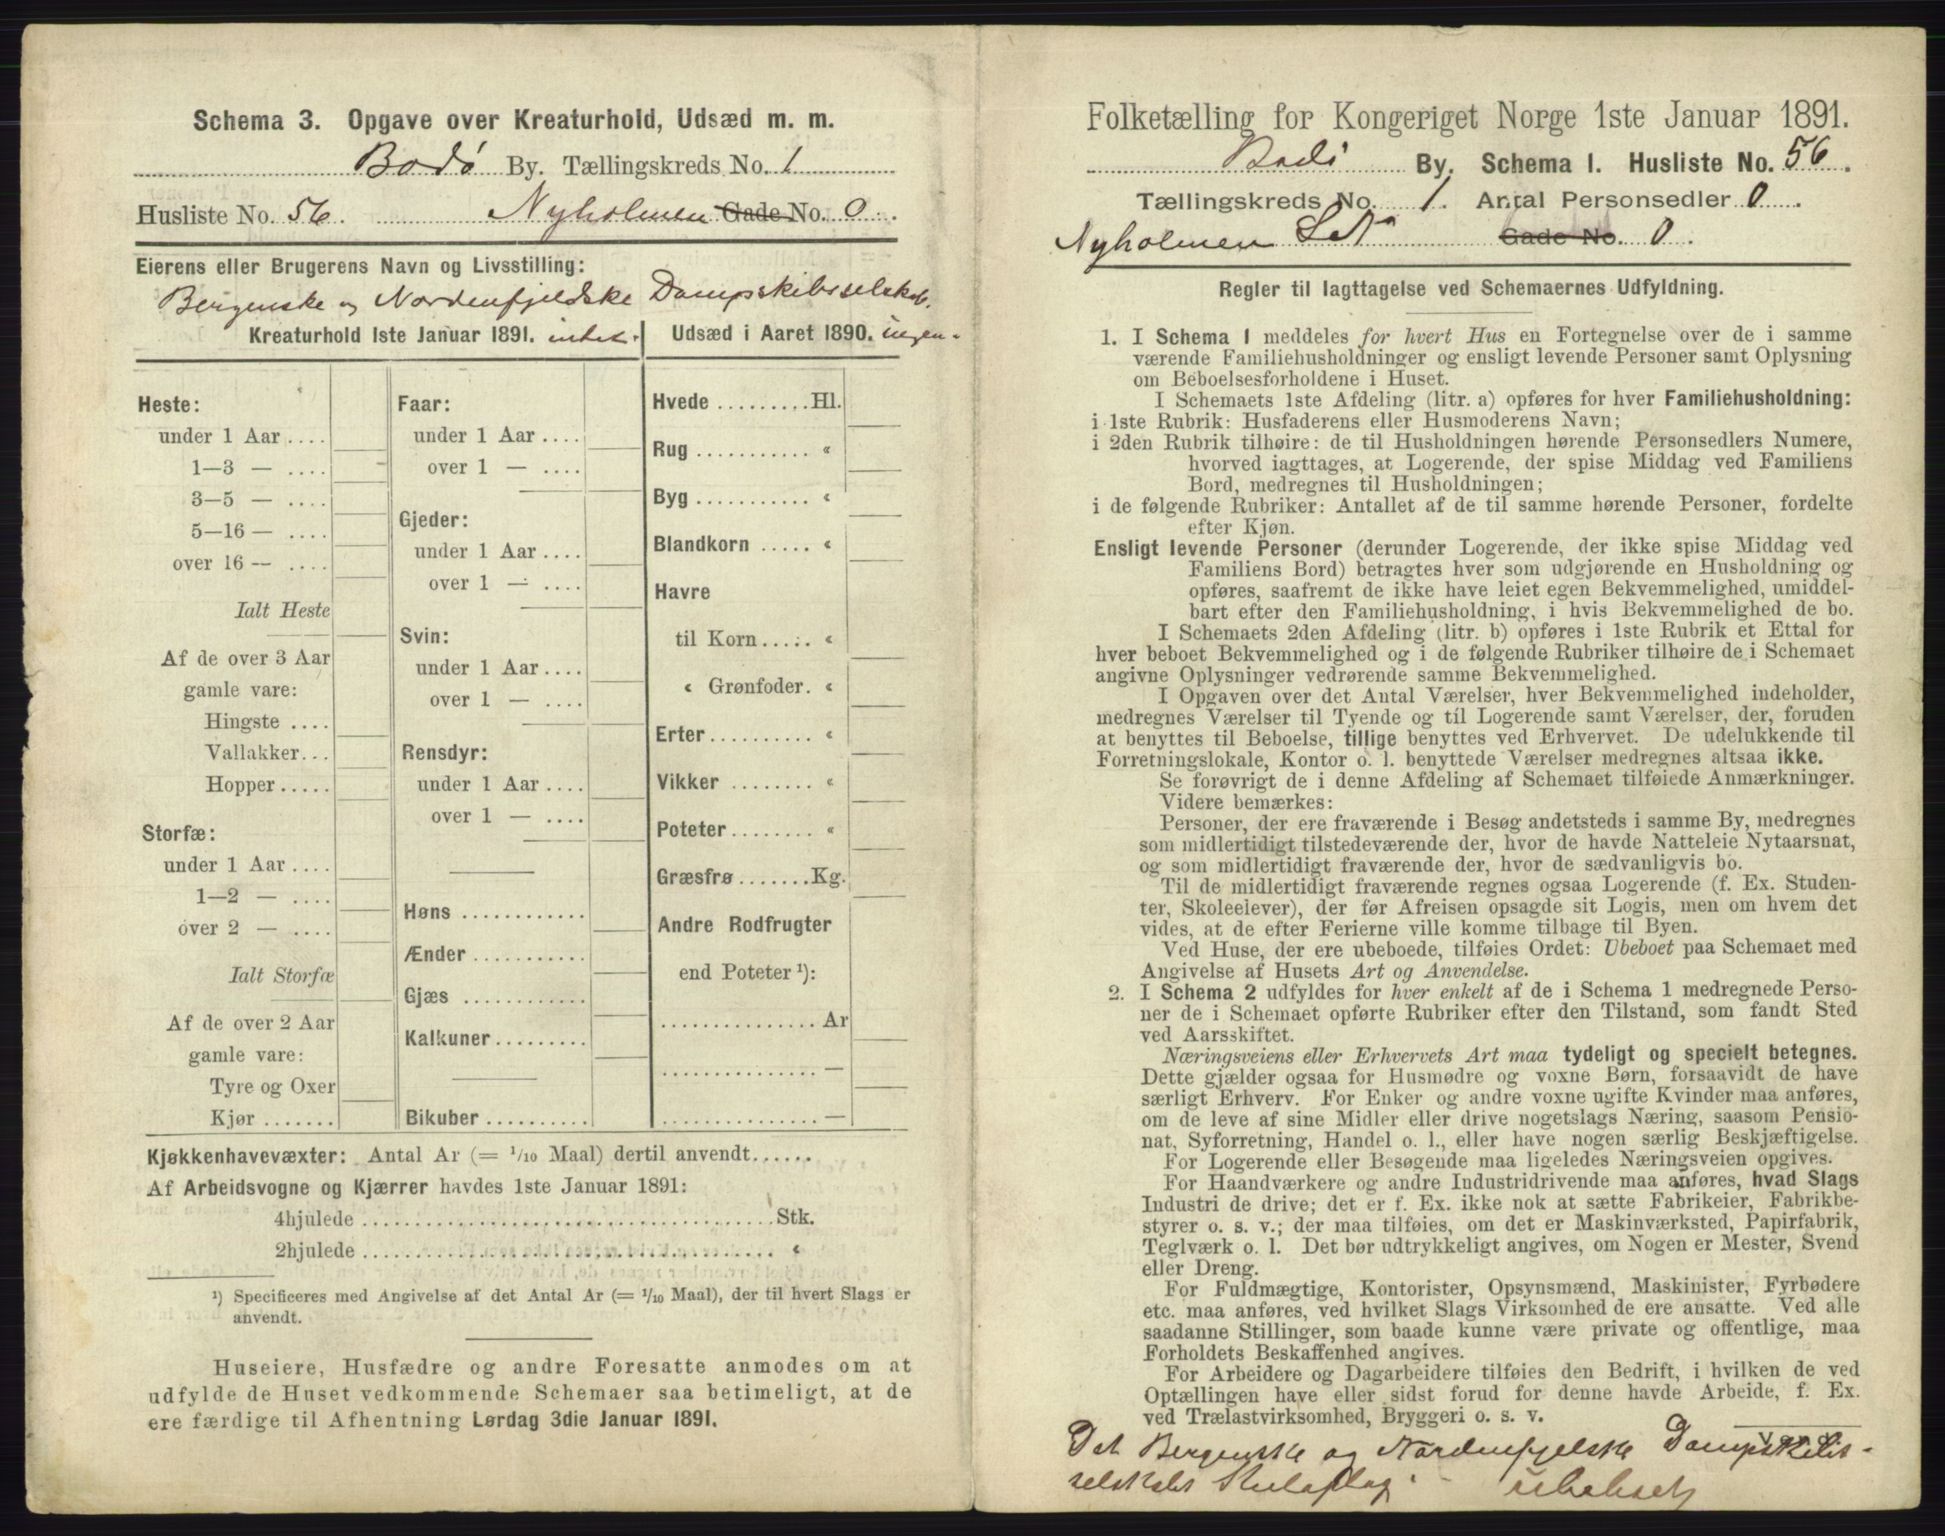 Schema 3. Opgave over Kreaturhold, Udsæd m. m.
Bodø By. Tællingskreds No. 1
Husliste No. 56. Nyholmen Gade No. 0.
Eierens eller Brugerens Navn og Livsstilling:
Bergenske og Nordenfjeldske Dampskibsselskab.
Kreaturhold 1ste Januar 1891. intet.
Heste:
under 1 Aar ....
1—3 — ....
3—5 — ....
5—16 — ....
over 16 — ....
Ialt Heste
Af de over 3 Aar
gamle vare:
Hingste ....
Vallakker...
Hopper.....
Storfæ:
under 1 Aar ....
1—2 — ....
over 2 — ....
Ialt Storfæ
Af de over 2 Aar
gamle vare:
Tyre og Oxer
Kjør .......
Faar:
under 1 Aar ....
over 1 — ....
Gjeder:
under 1 Aar ....
over 1 — ....
Svin:
under 1 Aar ....
over 1 — ....
Rensdyr:
under 1 Aar ....
over 1 — ....
Høns ............
Ænder ...........
Gjæs ............
Kalkuner.........
Bikuber ..........
Udsæd i Aaret 1890. ingen.
Hvede .........Hl.
Rug ........... «
Byg ........... «
Blandkorn ..... «
Havre
til Korn..... «
« Grønfoder. «
Erter.......... «
Vikker ........ «
Poteter........ «
Græsfrø.......Kg.
Andre Rodfrugter
end Poteter ¹):
...............Ar
............... —
............... —
Kjøkkenhavevæxter: Antal Ar (= 1/10 Maal) dertil anvendt......
Af Arbeidsvogne og Kjærrer havdes 1ste Januar 1891:
4hjulede ....................................Stk.
2hjulede .................................... «
¹) Specificeres med Angivelse af det Antal Ar (= 1/10 Maal), der til hvert Slags er
anvendt.
Huseiere, Husfædre og andre Foresatte anmodes om at
udfylde de Huset vedkommende Schemaer saa betimeligt, at de
ere færdige til Afhentning Lørdag 3die Januar 1891.
Folketælling for Kongeriget Norge 1ste Januar 1891.
Bodø By. Schema 1. Husliste No. 56.
Tællingskreds No. 1. Antal Personsedler 0.
Nyholmen Gade No. 0.
Regler til Iagttagelse ved Schemaernes Udfyldning.
1. I Schema 1 meddeles for hvert Hus en Fortegnelse over de i samme
værende Familiehusholdninger og ensligt levende Personer samt Oplysning
om Beboelsesforholdene i Huset.
I Schemaets 1ste Afdeling (litr. a) opføres for hver Familiehusholdning:
i 1ste Rubrik: Husfaderens eller Husmoderens Navn;
i 2den Rubrik tilhøire: de til Husholdningen hørende Personsedlers Numere,
hvorved iagttages, at Logerende, der spise Middag ved Familiens
Bord, medregnes til Husholdningen;
i de følgende Rubriker: Antallet af de til samme hørende Personer, fordelte
efter Kjøn.
Ensligt levende Personer (derunder Logerende, der ikke spise Middag ved
Familiens Bord) betragtes hver som udgjørende en Husholdning og
opføres, saafremt de ikke have leiet egen Bekvemmelighed, umiddel-
bart efter den Familiehusholdning, i hvis Bekvemmelighed de bo.
I Schemaets 2den Afdeling (litr. b) opføres i 1ste Rubrik et Ettal for
hver beboet Bekvemmelighed og i de følgende Rubriker tilhøire de i Schemaet
angivne Oplysninger vedrørende samme Bekvemmelighed.
I Opgaven over det Antal Værelser, hver Bekvemmelighed indeholder,
medregnes Værelser til Tyende og til Logerende samt Værelser, der, foruden
at benyttes til Beboelse, tillige benyttes ved Erhvervet. De udelukkende til
Forretningslokale, Kontor o. l. benyttede Værelser medregnes altsaa ikke.
Se forøvrigt de i denne Afdeling af Schemaet tilføiede Anmærkninger.
Videre bemærkes:
Personer, der ere fraværende i Besøg andetsteds i samme By, medregnes
som midlertidigt tilstedeværende der, hvor de havde Natteleie Nytaarsnat,
og som midlertidigt fraværende der, hvor de sædvanligvis bo.
Til de midlertidigt fraværende regnes ogsaa Logerende (f. Ex. Studen-
ter, Skoleelever), der før Afreisen opsagde sit Logis, men om hvem det
vides, at de efter Ferierne ville komme tilbage til Byen.
Ved Huse, der ere ubeboede, tilføies Ordet: Ubeboet paa Schemaet med
Angivelse af Husets Art og Anvendelse.
2. I Schema 2 udfyldes for hver enkelt af de i Schema 1 medregnede Perso-
ner de i Schemaet opførte Rubriker efter den Tilstand, som fandt Sted
ved Aarsskiftet.
Næringsveiens eller Erhvervets Art maa tydeligt og specielt betegnes.
Dette gjælder ogsaa for Husmødre og voxne Børn, forsaavidt de have
særligt Erhverv. For Enker og andre voxne ugifte Kvinder maa anføres,
om de leve af sine Midler eller drive nogetslags Næring, saasom Pensio-
nat, Syforretning, Handel o. l., eller have nogen særlig Beskjæftigelse.
For Logerende eller Besøgende maa ligeledes Næringsveien opgives.
For Haandværkere og andre Industridrivende maa anføres, hvad Slags
Industri de drive; det er f. Ex. ikke nok at sætte Fabrikeier, Fabrikbe-
styrer o. s. v.; der maa tilføies, om det er Maskinværksted, Papirfabrik,
Teglværk o. l. Det bør udtrykkeligt angives, om Nogen er Mester, Svend
eller Dreng.
For Fuldmægtige, Kontorister, Opsynsmænd, Maskinister, Fyrbødere
etc. maa anføres, ved hvilket Slags Virksomhed de ere ansatte. Ved alle
saadanne Stillinger, som baade kunne være private og offentlige, maa
Forholdets Beskaffenhed angives.
For Arbeidere og Dagarbeidere tilføies den Bedrift, i hvilken de ved
Optællingen have eller sidst forud for denne havde Arbeide, f. Ex.
ved Trælastvirksomhed, Bryggeri o. s. v.
Det Bergenske og Nordenfjelske Dampskibs-
selskabs ubeboet